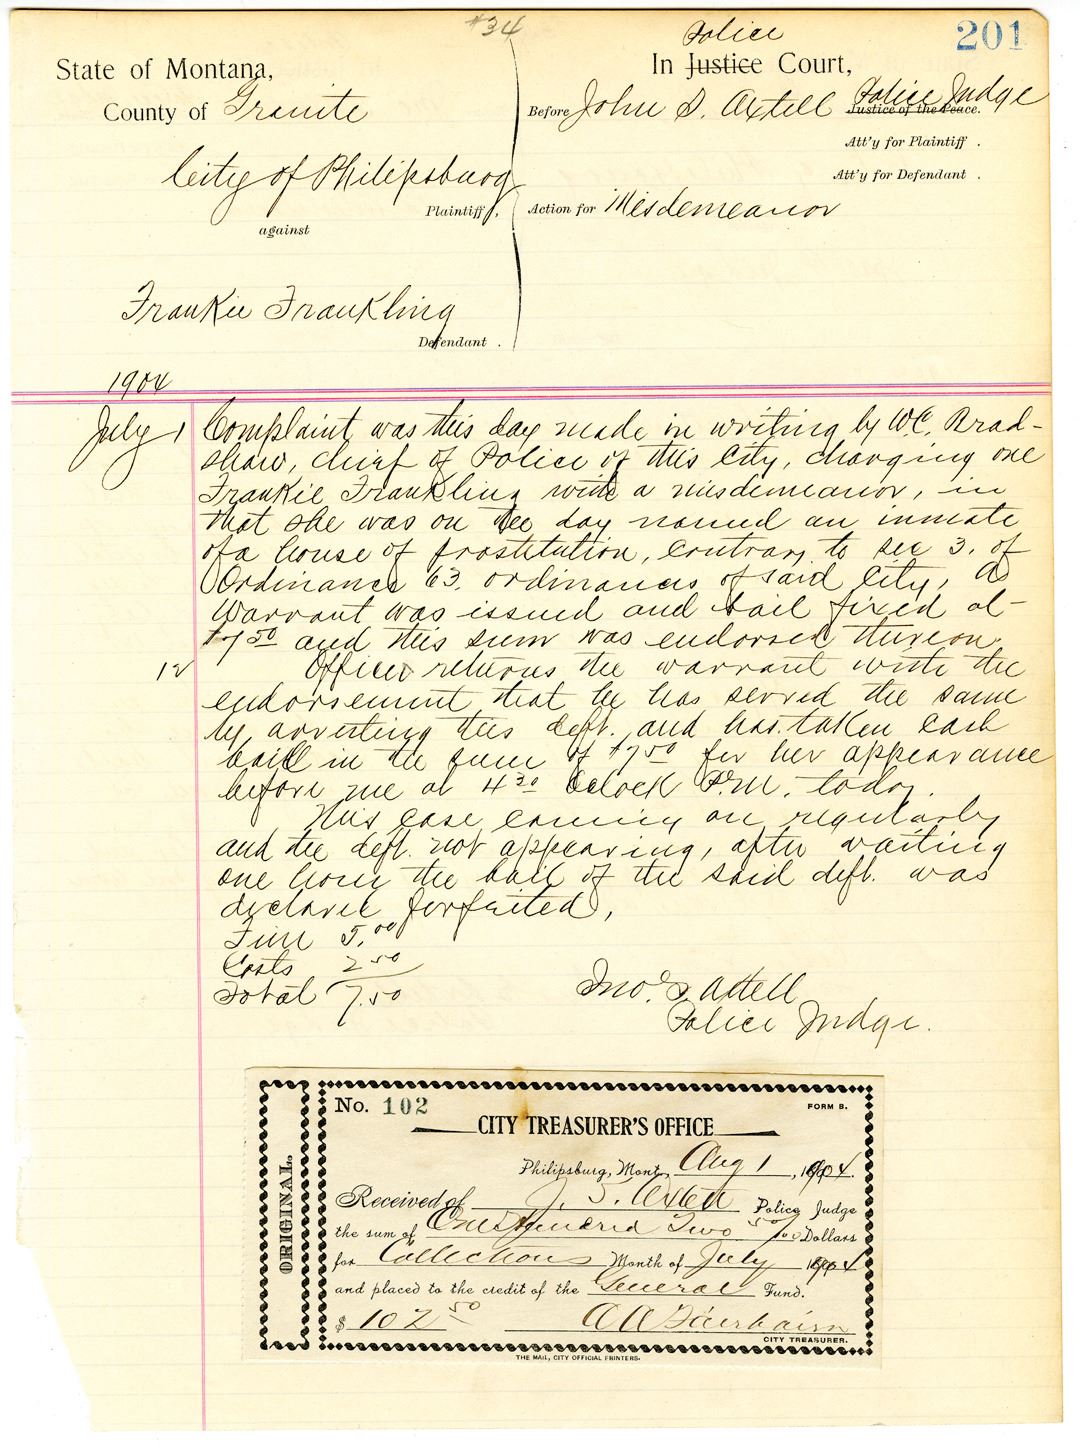 #34
201
State of Montana,
County of Granite
City of Philipsburg
Plaintiff,
against
Frankie Frankling
Defendant.
Police
In Justice Court,
Before John S. Axtell Police Judge
Justice of the Peace.
Att'y for Plaintiff.
Att'y for Defendant.
Action for Misdemeanor
1904
July 1 Complaint was this day made in writing by W.C. Brad-
shaw, chief of Police of this City, charging one
Frankie Frankling with a misdemeanor, in
that she was on the day named an inmate
of a house of prostitution, contrary to sec 3. of
Ordinance 63. ordinances of said City, A
Warrant was issued and bail fixed at
$7.50 and this sum was endorsed thereon.
12 Officer returns the warrant with the
endorsement that he has served the same
by arresting this deft. and has taken cash
bail in the sum of $7.50 for her appearance
before me at 4 30 Oclock P.M. today.
This case coming on regularly
and the deft. not appearing, after waiting
one hour the bail of the said deft. was
declared forfeited,
Fine 5.00
Costs 2 50
Total 7.50
Jno. S. Axtell
Police Judge.
ORIGINAL.
No. 102
FORM B.
CITY TREASURER'S OFFICE
Philipsburg, Mont., Aug 1, 1904.
Received of J. S. Axtell Police Judge
the sum of One Hundred Two 50/100 Dollars
for Collections Month of July 1904
and placed to the credit of the General Fund.
$ 102 50 A A Fairbairn
CITY TREASURER.
THE MAIL, CITY OFFICIAL PRINTERS.